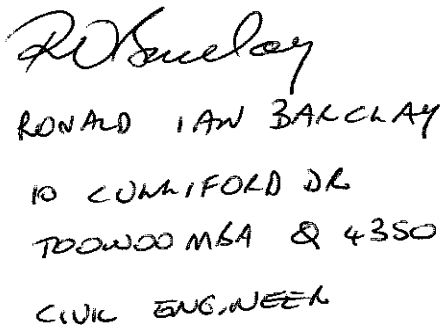 RBarclay
RONALD IAN BARCLAY
10 CUNLIFORD DR
TOOWOOMBA Q 4350
CIVIL ENGINEER